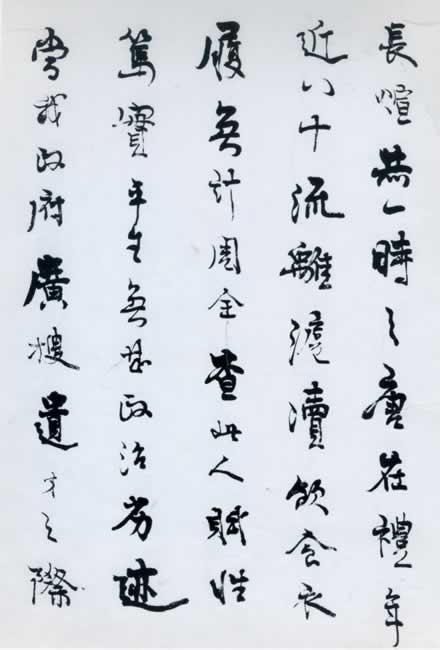 長煊赫一時之唐在禮年
近八十流離滬瀆飲食衣
履無計周全查此人賦性
篤實平生無甚政治劣迹
當我政府廣搜遺才之際